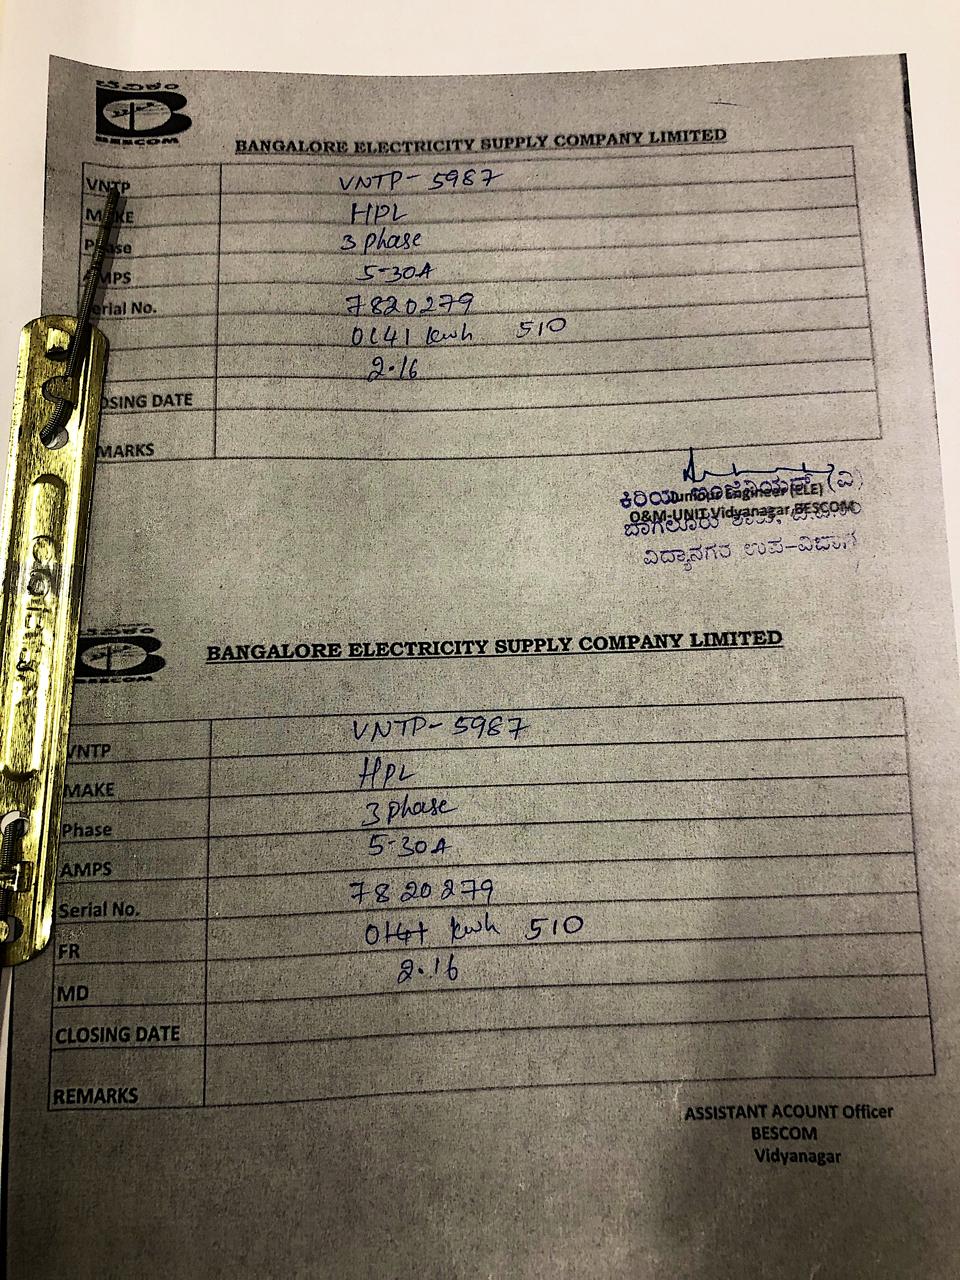 ಬೆವಿಕಂ
BESCOM
BANGALORE ELECTRICITY SUPPLY COMPANY LIMITED
VNTP VNTP-5987
MAKE HPL
Phase 3 phase
AMPS 5-30A
erial No. 7820279
0141 kwh 510
2.16
OSING DATE
MARKS
ಕಿರಿಯ (ವಿ)
Juniour Engineer (ELE)
O&M-UNIT Vidyanagar BESCOM
ಬಾಗಲೂರು
ವಿದ್ಯಾನಗರ ಉಪ-ವಿಭಾಗ
BESCOM
BANGALORE ELECTRICITY SUPPLY COMPANY LIMITED
VNTP VNTP-5987
MAKE HPL
Phase 3 phase
AMPS 5-30A
Serial No. 7820279
FR 0141 kwh 510
MD 2.16
CLOSING DATE
REMARKS
ASSISTANT ACOUNT Officer
BESCOM
Vidyanagar